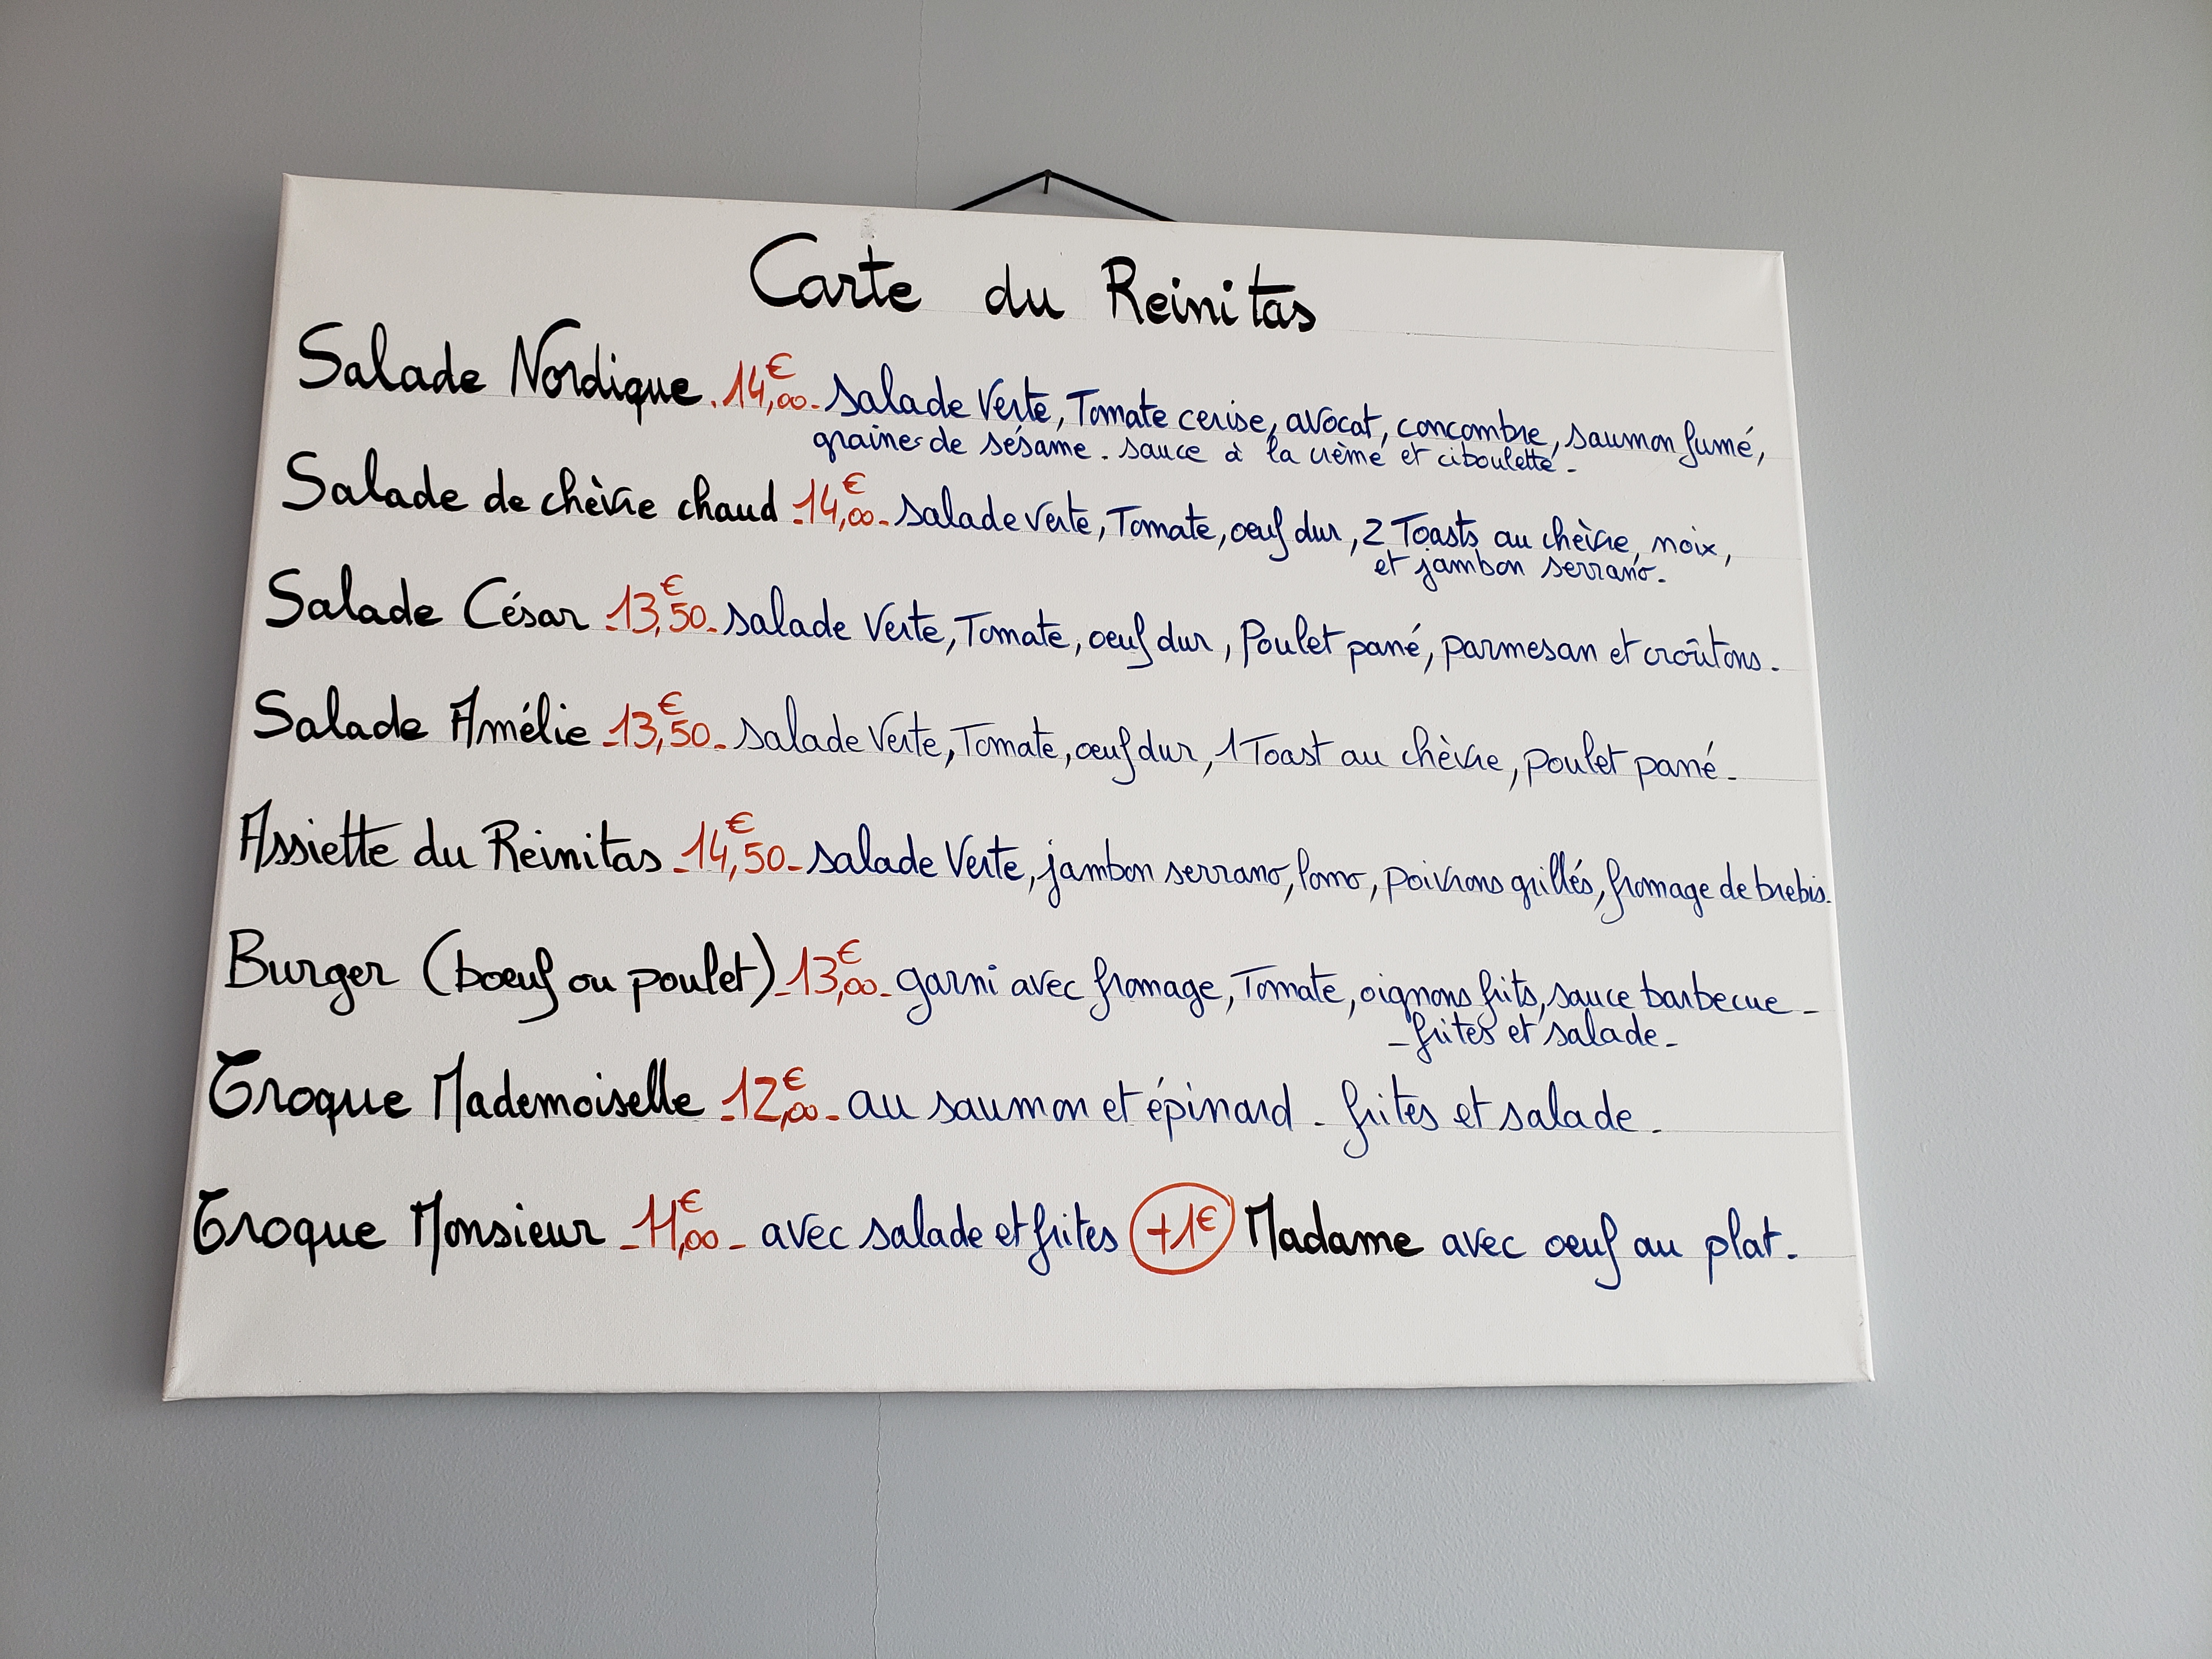 Carte du Reinitas
Salade Nordique. 14,00€ - salade verte, Tomate cerise, avocat, concombre, saumon fumé,
graines de sésame. sauce à la crème et ciboulette -
Salade de chèvre chaud - 14,00€ - salade verte, Tomate, oeuf dur, 2 Toasts au chèvre, noix,
et jambon serrano.
Salade César - 13,50€ - salade verte, Tomate, oeuf dur, Poulet pané, parmesan et croûtons.
Salade Amélie - 13,50€ - salade verte, Tomate, oeuf dur, 1 Toast au chèvre, poulet pané -
Assiette du Reinitas - 14,50€ - salade verte, jambon serrano, lomo, poivrons grillés, fromage de brebis.
Burger (boeuf ou poulet) - 13,00€ - garni avec fromage, Tomate, oignons frits, sauce barbecue -
- frites et salade -
Croque Mademoiselle - 12,00€ - au saumon et épinard - frites et salade -
Croque Monsieur - 11,00€ - avec salade et frites +1€ Madame avec oeuf au plat -